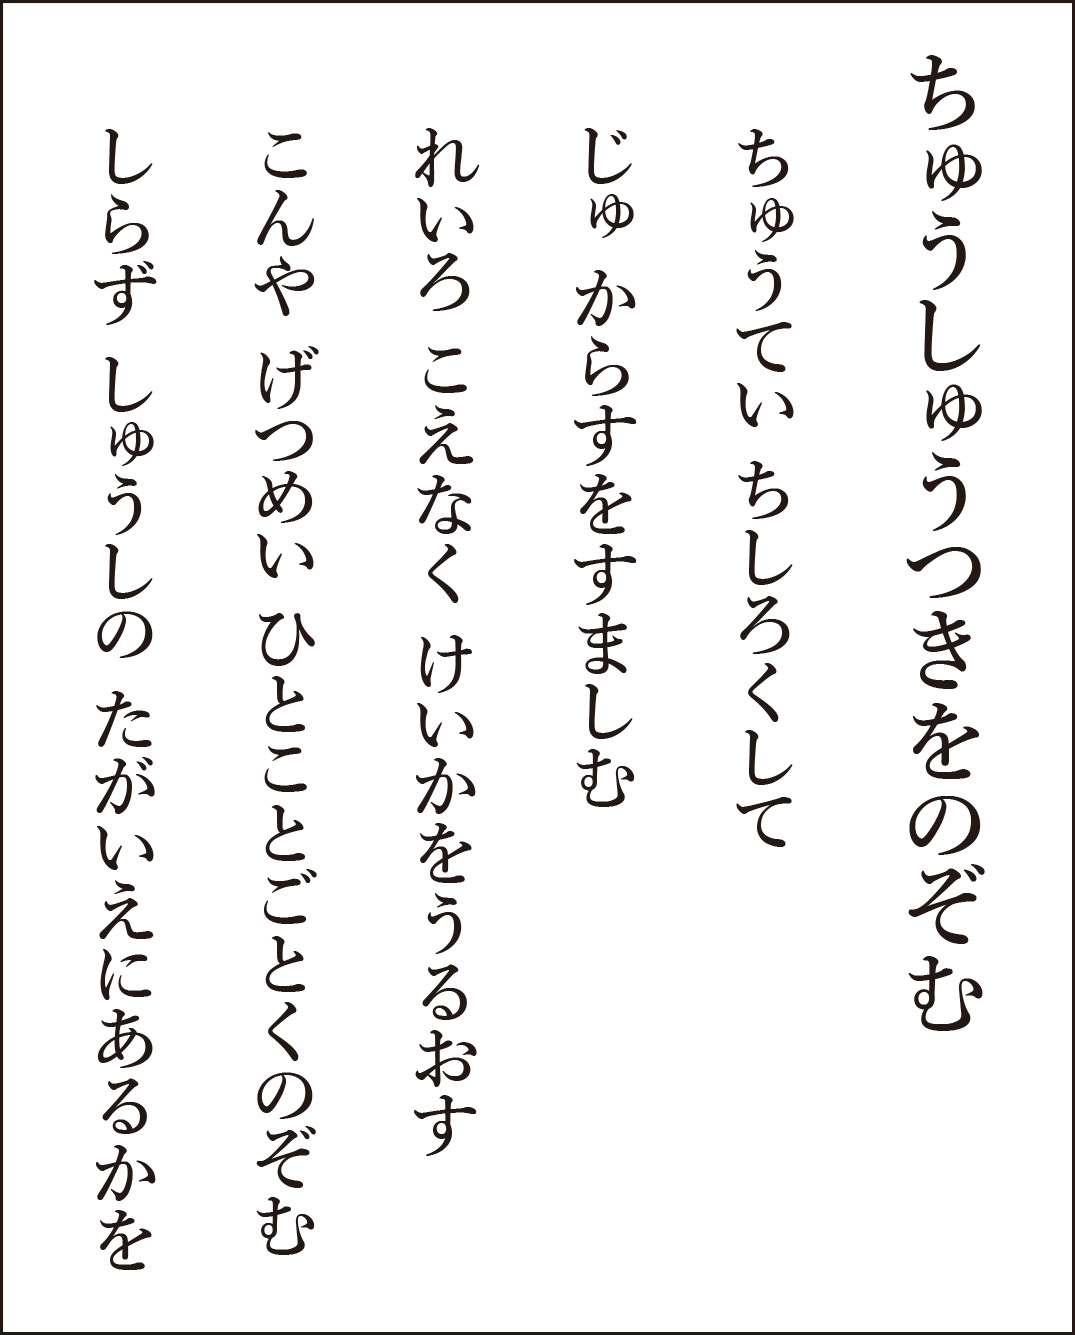 ちゅうしゅうつきをのぞむ
ちゅうてい ちしろくして
じゅ からすをすましむ
れいろ こえなく けいかをうるおす
こんや げつめい ひとことごとくのぞむ
しらず しゅうしの たがいえにあるかを